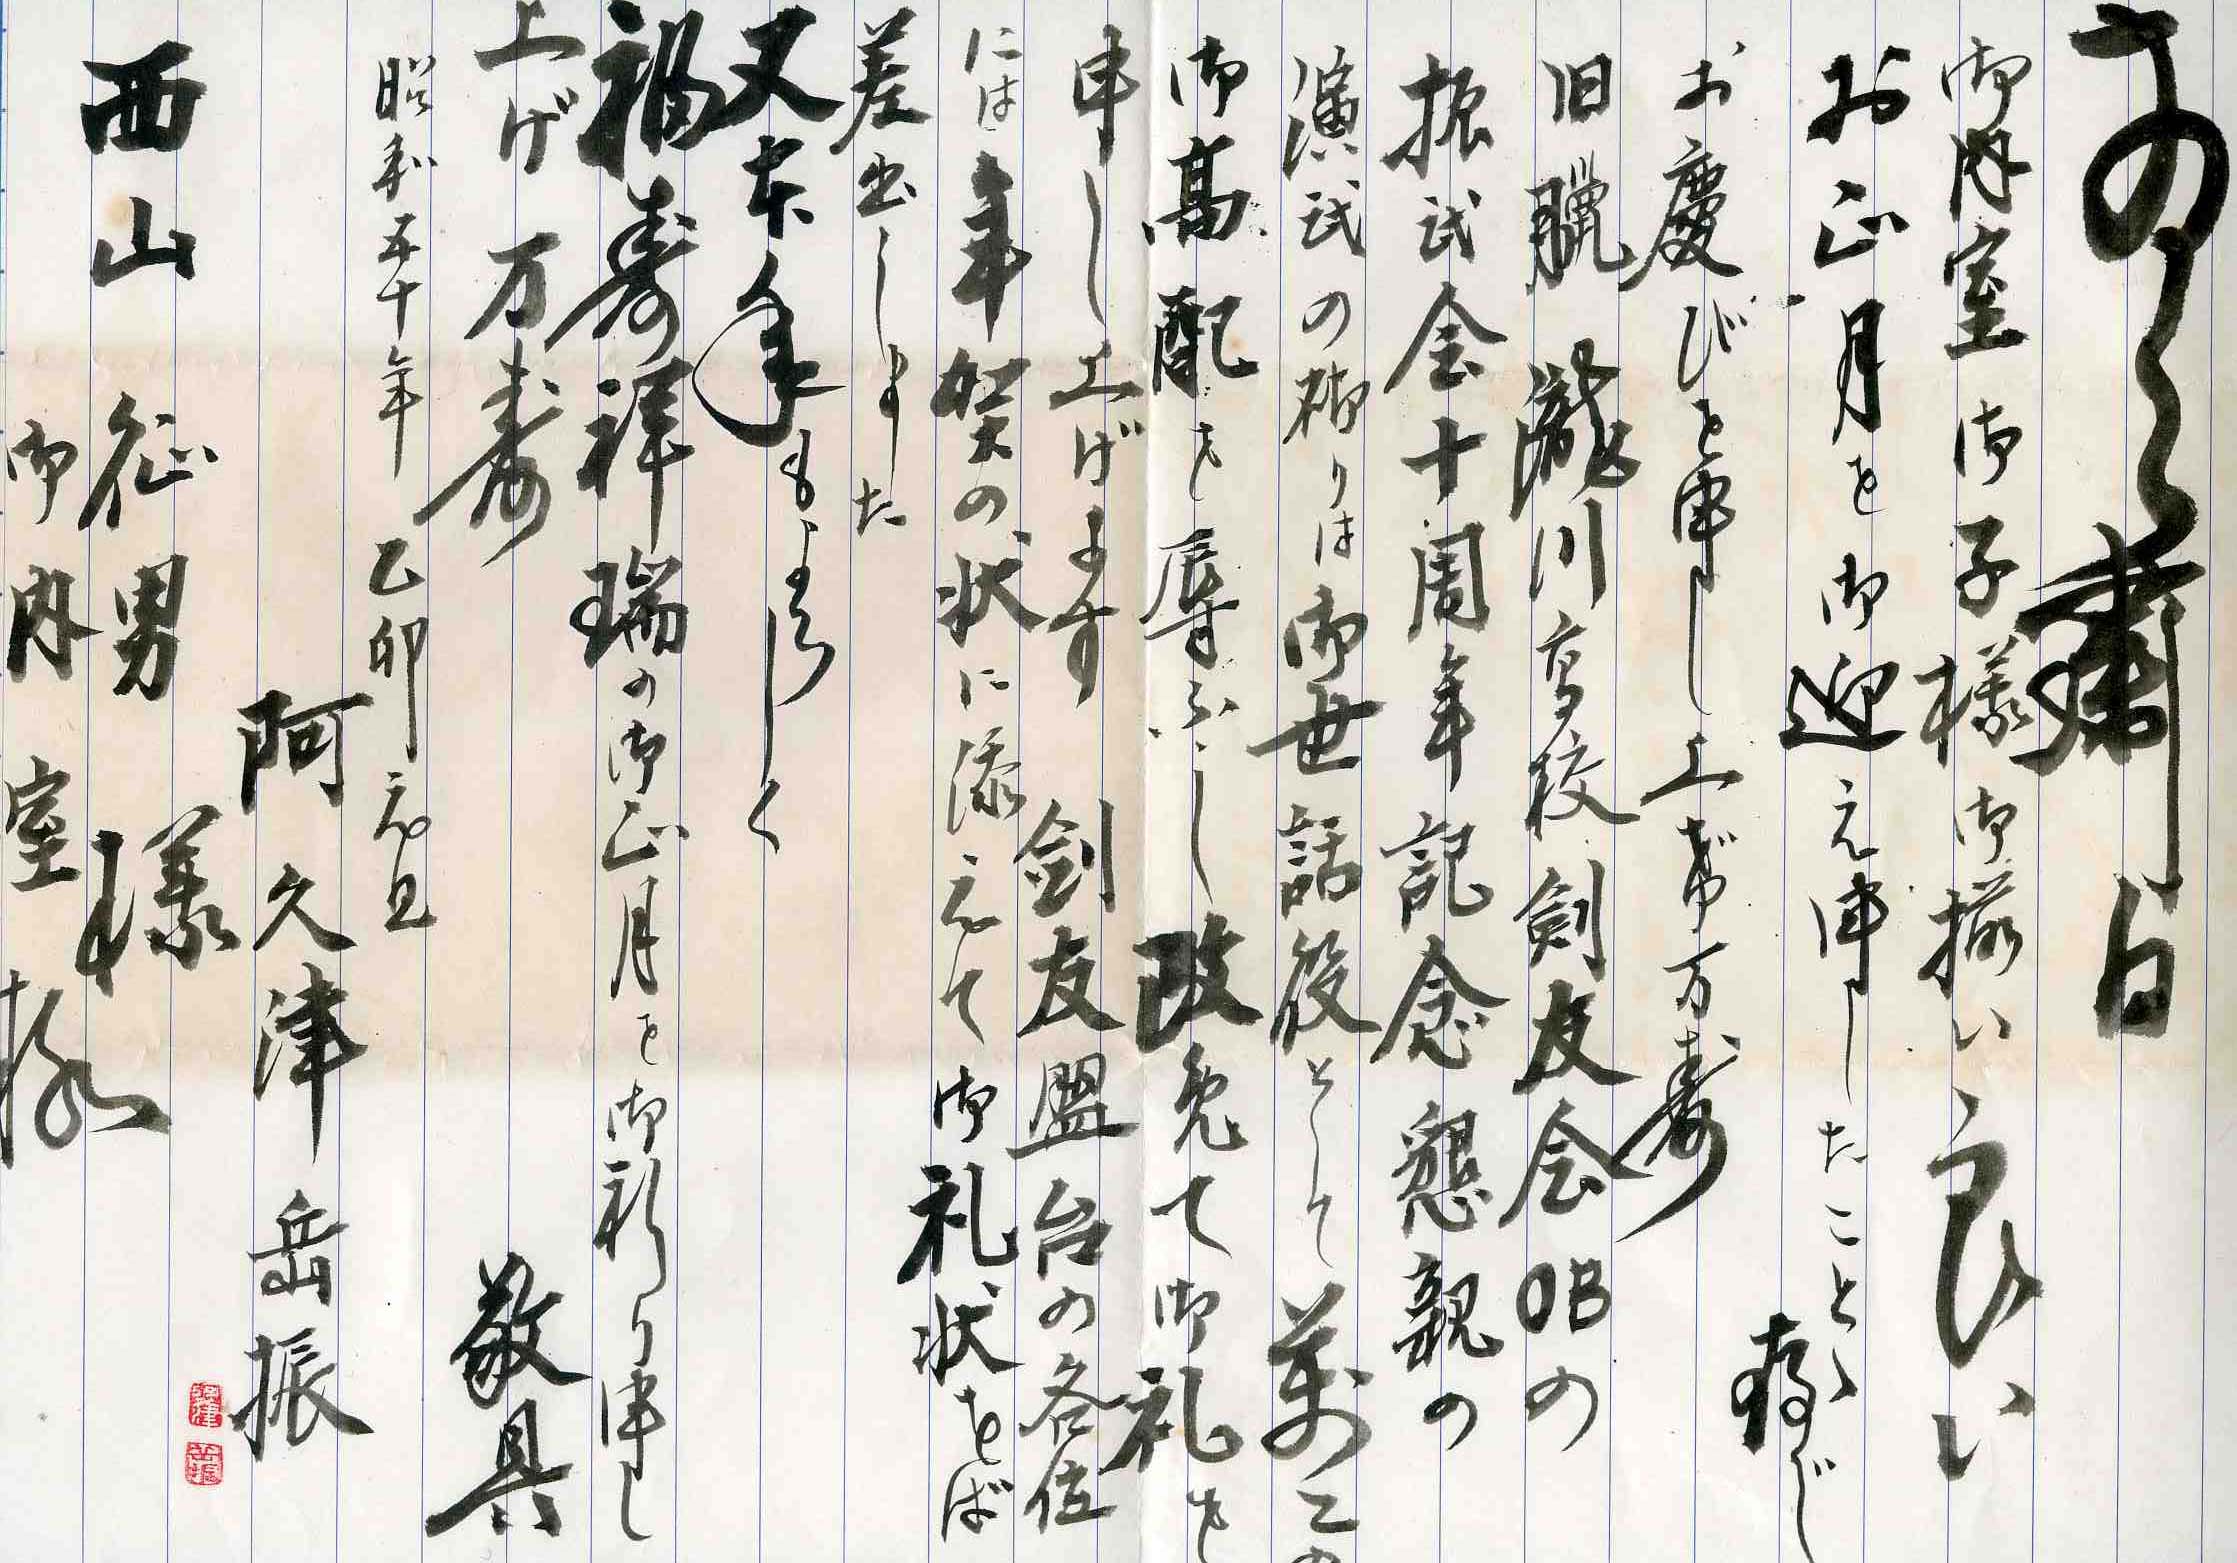 粛白
御内室御子様御揃いうるはしい
お正月を御迎え申したことゝ存じ
お慶びを申し上げ万寿
旧臘瀧川高校剣友会OBの
振武会十周年記念懇親の
演武の砌りは御世話役として萬この
御高配を辱ふし改めて御礼を
申し上げます 剣友盟台の各位
には年賀の状に添えて御礼状をば
差出しました
又本年もよろしく
福寿祥瑞の御正月を御祈り申し
上げ万寿 敬具
昭和五十年 乙卯 元旦
阿久津岳振
西山征男様
御内室様